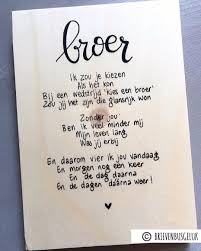 broer
Ik zou je kiezen
Als het kon
Bij een wedstrijd 'kies een broer'
Zou jij het zijn die glansrijk won
Zonder jou
Ben ik veel minder mij
Mijn leven lang
Was jij erbij
En daarom vier ik jou vandaag
En morgen nog een keer
En de dag daarna
En de dagen daarna weer!
© BRIEVENBUSGELUK